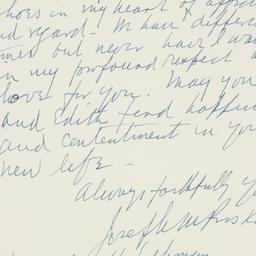 echoes in my heart of affect
nd regard - We have differed
times but never have I wav
in my profound respect a
love for you. May you
and Edith find happin
and contentment in you
new life -
Always faithfully yo
Joseph M. Prosk